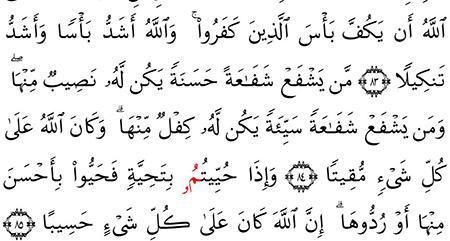 اللَّهُ أَن يَكُفَّ بَأْسَ الَّذِينَ كَفَرُواْ ۚ وَاللَّهُ أَشَدُّ بَأْسًا وَأَشَدُّ
تَنكِيلًا ﴿٨٣﴾ مَّن يَشْفَعْ شَفَٰعَةً حَسَنَةً يَكُن لَّهُۥ نَصِيبٌ مِّنْهَا ۖ
وَمَن يَشْفَعْ شَفَٰعَةً سَيِّئَةً يَكُن لَّهُۥ كِفْلٌ مِّنْهَا ۗ وَكَانَ اللَّهُ عَلَىٰ
كُلِّ شَىْءٍ مُّقِيتًا ﴿٨٤﴾ وَإِذَا حُيِّيتُمُۥ بِتَحِيَّةٍ فَحَيُّواْ بِأَحْسَنَ
مِنْهَا أَوْ رُدُّوهَا ۗ إِنَّ اللَّهَ كَانَ عَلَىٰ كُلِّ شَىْءٍ حَسِيبًا ﴿٨٥﴾